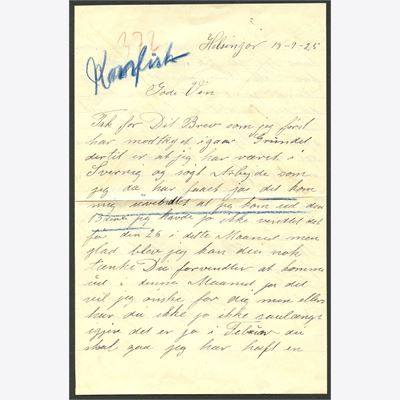 272
Konfisk.
Helsingör 19-1-25
Gode Ven
Tak for Dit Brev som jeg först
har modtaget igaar Grundet
dertil er at jeg har været i
Sverrig og sögt Arbejde som
jeg da har faaet ja det kom
mig uventet at jeg kom ud den
jeg havde jo ikke ventet det
för den 26 i dette Maaned men
glad blev jeg kan du nok
tænke Du forventer at komme
ud i denne Maaned, ja det
vil jeg önske for dig men ellers
har du ikke jo ikke saalænge
igjen det er jo i Februar du
skal ud jeg har haft en